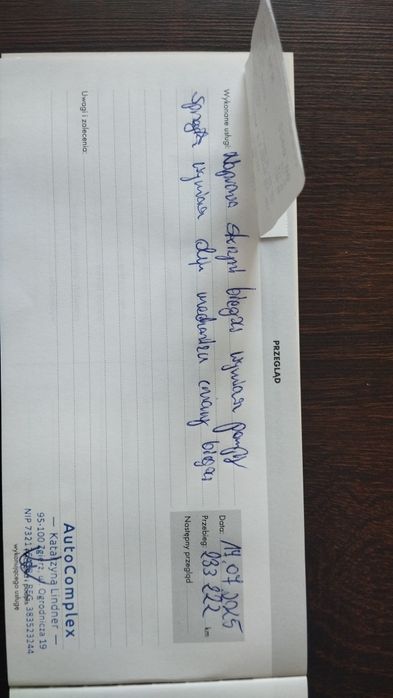 PRZEGLĄD
Wykonane usługi: Naprawa skrzyni biegów wymiana pompy
sprzęgła wymiana oleju mechanizm zmiany biegów
Uwagi i zalecenia:
Data: 14.07 2025
Przebieg: 233 232 km
Następny przegląd
AutoComplex
— Katarzyna Lindner —
95-100 Zgierz, ul. Ogrodnicza 19
NIP 732 383523244
wykonującego usługę